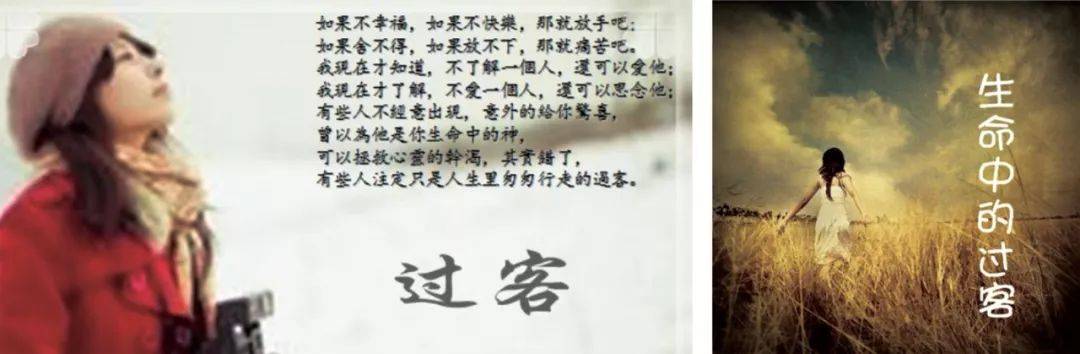 如果不幸福，如果不快樂，那就放手吧；
如果舍不得，如果放不下，那就痛苦吧。
我現在才知道，不了解一個人，還可以愛他；
我現在才了解，不愛一個人，還可以思念他；
有些人不經意出現，意外的給你驚喜，
曾以為他是你生命中的神，
可以拯救心靈的幹渴，其實錯了，
有些人注定只是人生里匆匆行走的過客。
过客
生命中的过客